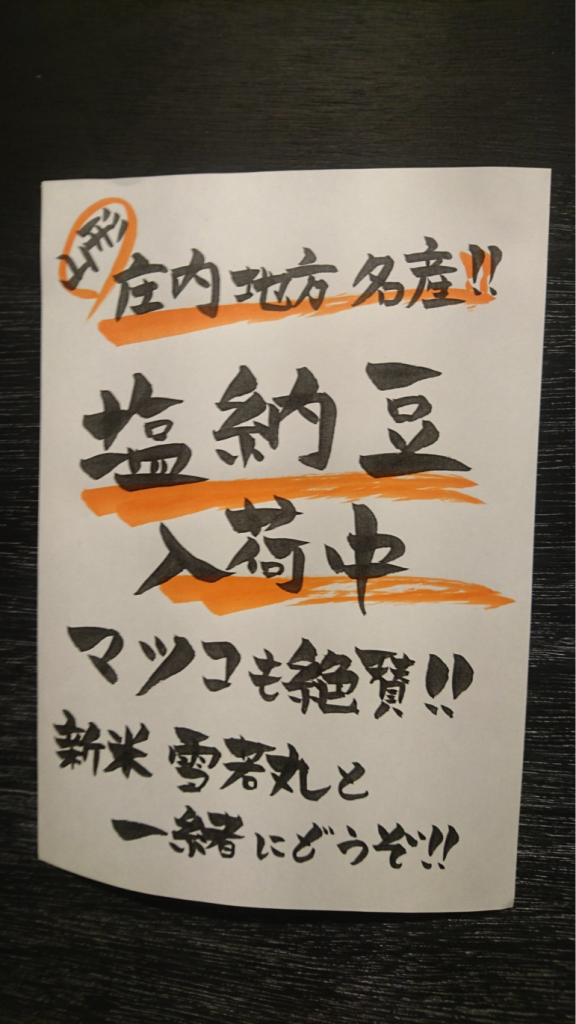 庄内地方名産!!
塩納豆
入荷中
マツコも絶賛!!
新米 雪若丸と
一緒にどうぞ!!